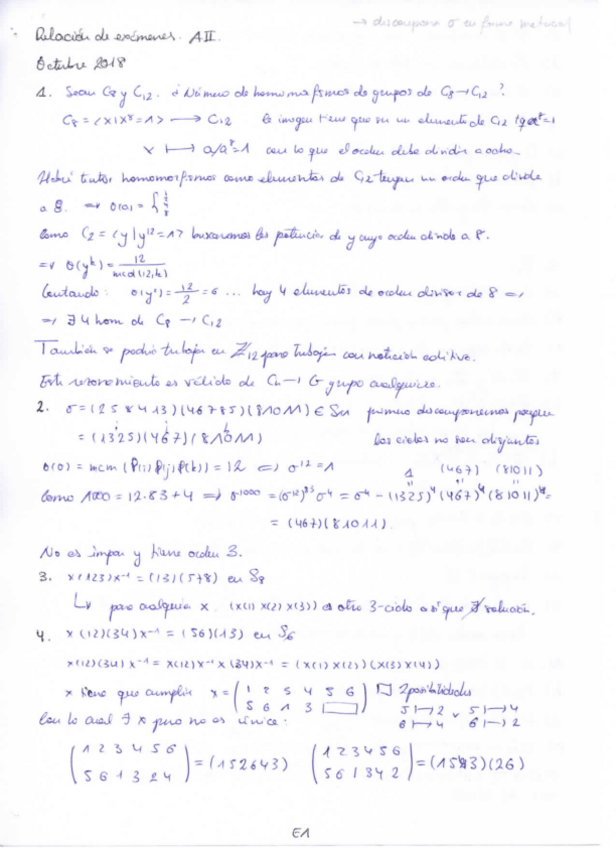 → descomponer σ en forma
Relación de exámenes. AII.
Octubre 2018
1. Sean C8 y C12. ¿Número de homomorfismos de grupos de C8→C12?
C8 = <x|x⁸=1> → C12 la imagen tiene que ser un elemento de C12 tq a⁸=1
x ↦ a/a⁸=1 con lo que el orden debe dividir a ocho.
Habrá tantos homomorfismos como elementos de C12 tengan un orden que divide
a 8. ⇒ o(a) = {
Como C2 = <y|y¹²=1> buscaremos las potencias de y cuyo orden divide a 8.
⇒ O(yᵏ) = 12/mcd(12,k)
Contando: = 12/2 = 6 ... hay 4 elementos de orden divisor de 8 ⇒
⇒ ∃ 4 hom de C8 → C12
También se podría trabajar en Z12 para trabajar con notación aditiva.
Este razonamiento es válido de Cn → G grupo cualquiera.
2. σ = (258413)(46785)(81011) ∈ primero descomponemos porque
= (1325)(467)(81011) los ciclos no son disjuntos
= 12 ⇒ σ¹²=1 1 (467) (81011)
Como 1000 = 12·83+4 ⇒ σ¹⁰⁰⁰ = (σ¹²)⁸³ σ⁴ = σ⁴ = (1325)⁴(467)⁴(81011)⁴=
= (467)(81011).
No es impar y tiene orden 3.
3. x(123)x⁻¹ = (13)(578) en S8
↳ para cualquier x, (x(1)x(2)x(3)) es otro 3-ciclo así que ∄ solución.
4. x(12)(34)x⁻¹ = (56)(13) en S6
x(12)(34)x⁻¹ = x(12)x⁻¹x(34)x⁻¹ = (x(1)x(2))(x(3)x(4))
x tiene que cumplir x = (1 2 3 4 5 6 □ 2 posibilidades
5 6 1 3 □) 5↦2 v 5↦4
Con lo cual ∃ x pero no es única: 6↦4 6↦2
(1 2 3 4 5 6 (1 2 3 4 5 6
5 6 1 3 2 4) = (152643) 5 6 1 3 4 2) = (1543)(26)
E1